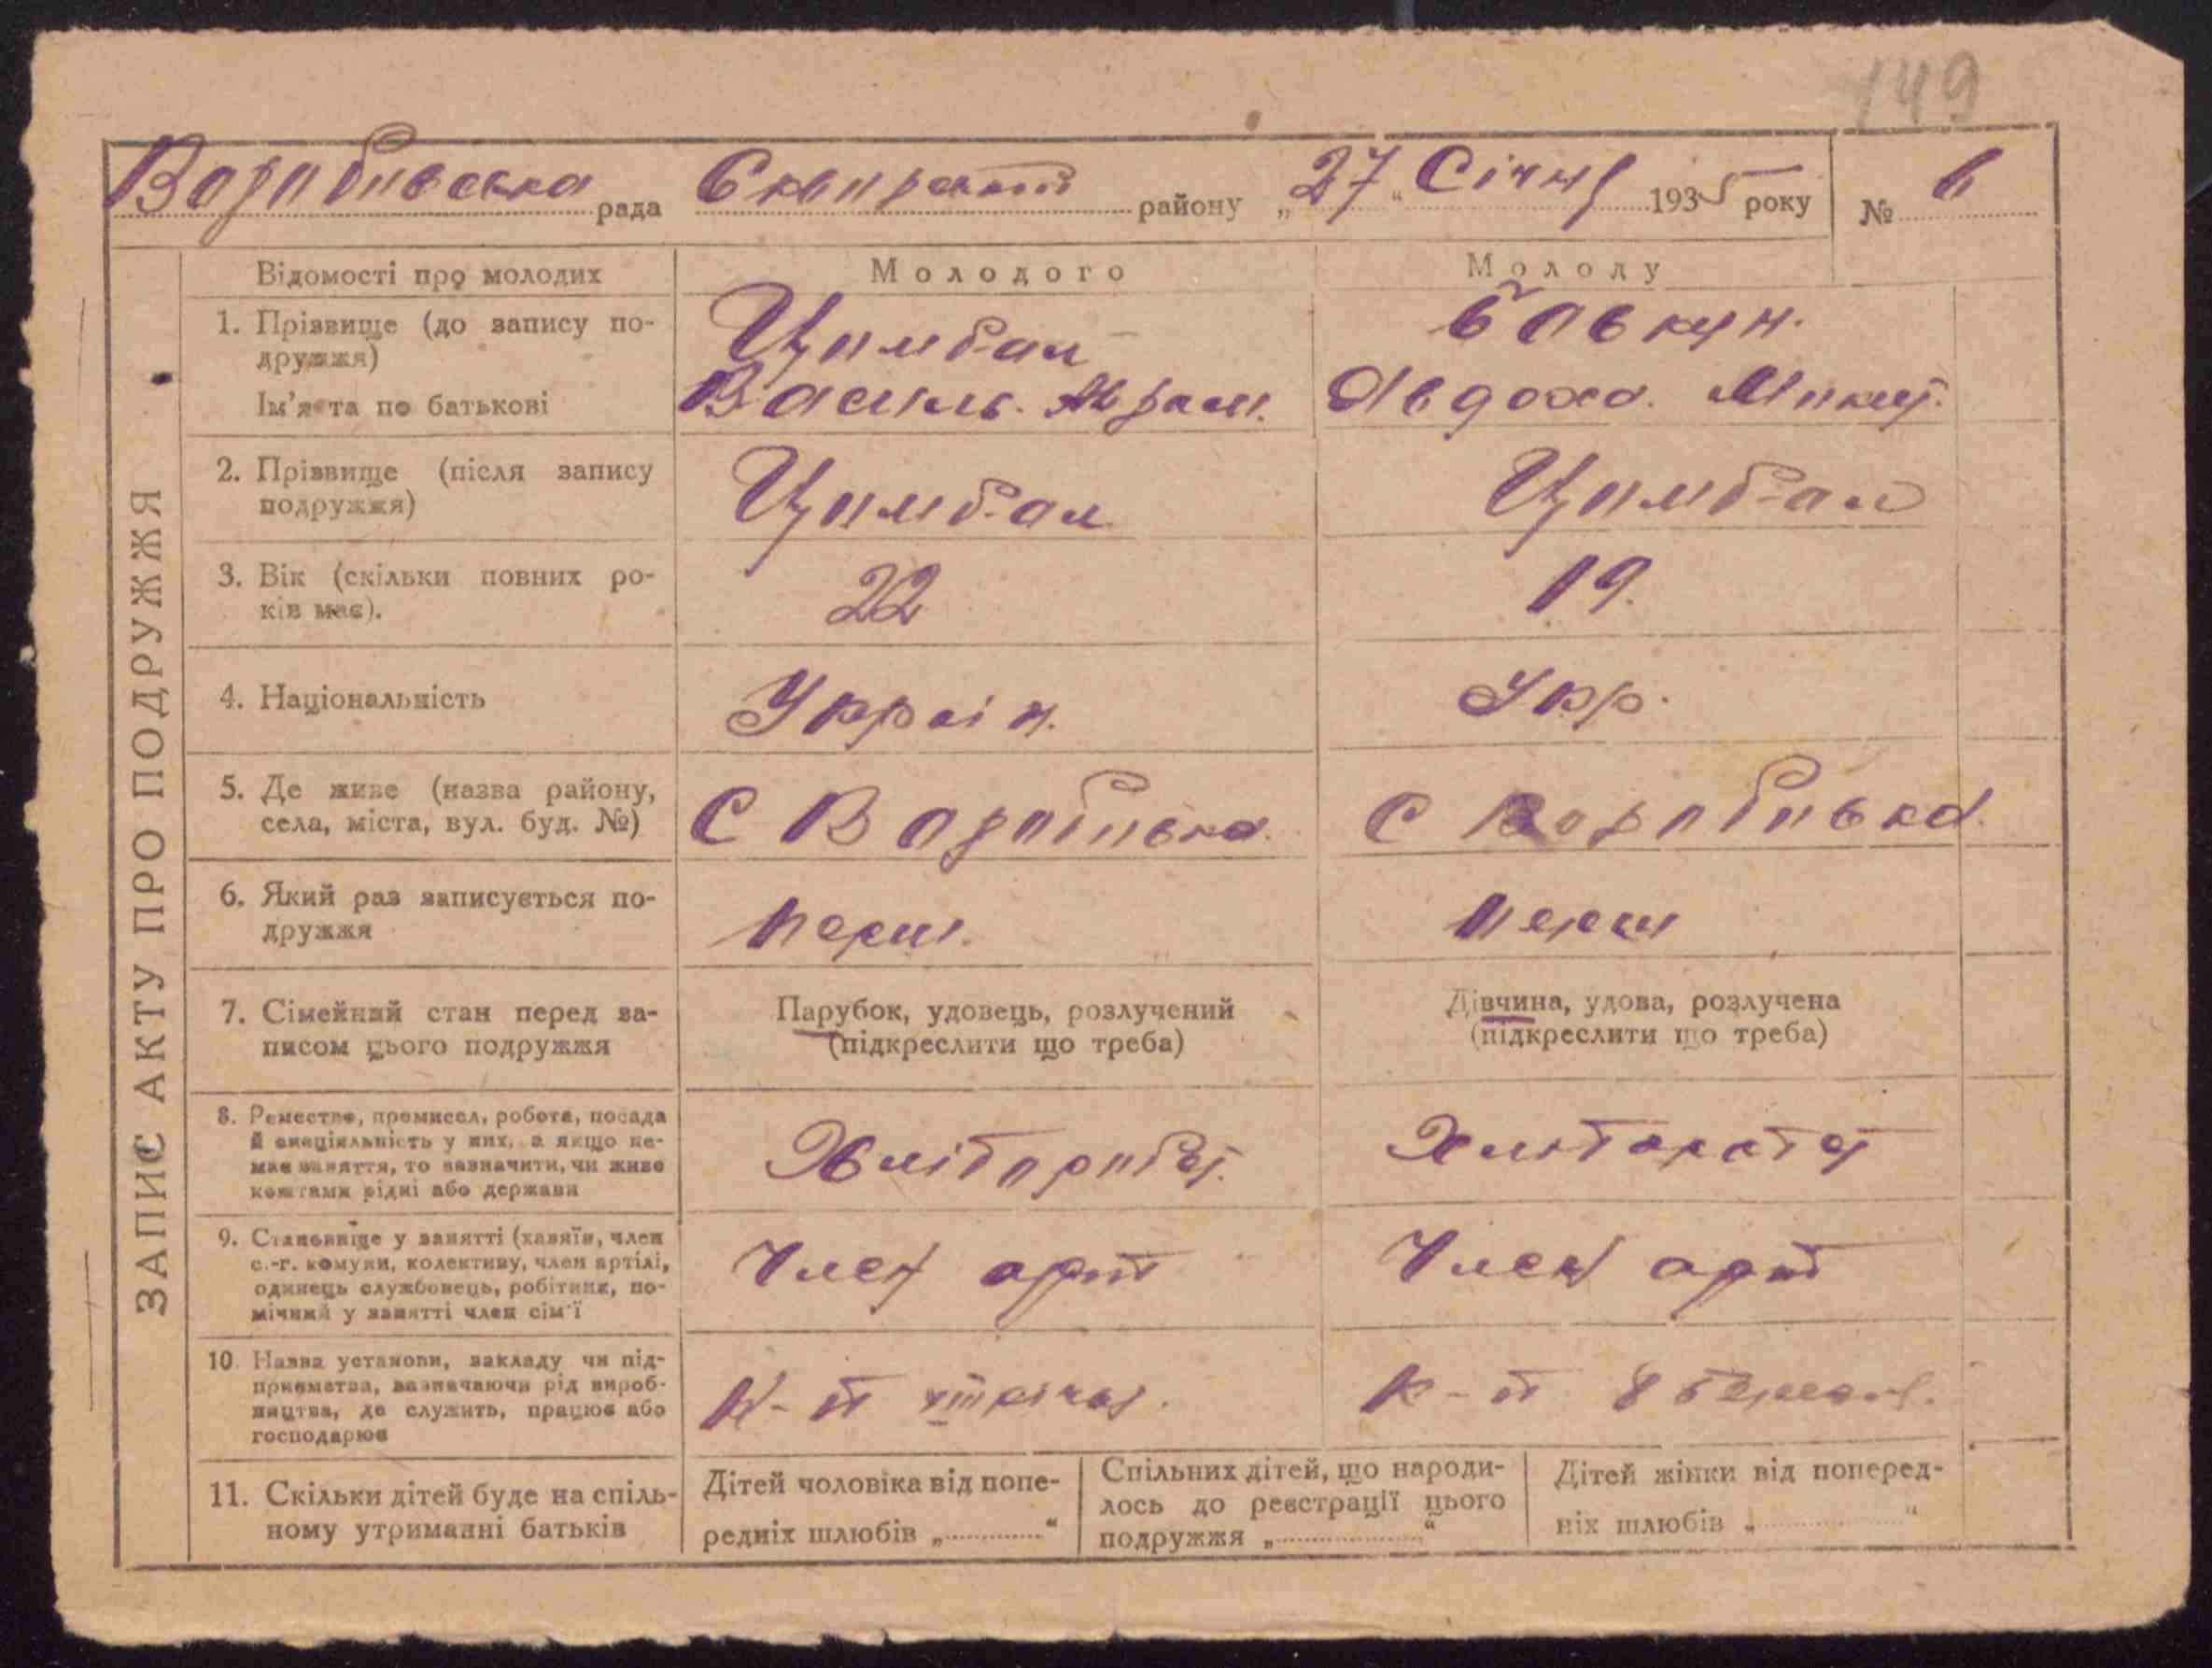 149
Воробиівська рада Сквирськ району „27“ Січня 1935 року № 6
Відомості про молодих Молодого Молоду
ЗАПИС АКТУ ПРО ПОДРУЖЖЯ
1. Прізвище (до запису по-
дружжя)
Цимбал
Бовкун.
Ім'я та по батькові
Василь. Аврам.
Явдоха. Микит.
2. Прізвище (після запису
подружжя)
Цимбал
Цимбал
3. Вік (скільки повних ро-
ків має).
22
19.
4. Національність
Украін.
Укр.
5. Де живе (назва району,
села, міста, вул. буд. №)
С Воробиівка
С Воробиівка.
6. Який раз записується по-
дружжя
перш.
перш
7. Сімейний стан перед за-
писом цього подружжя
Парубок, удовець, розлучений
(підкреслити що треба)
Дівчина, удова, розлучена
(підкреслити що треба)
8. Ремество, промисел, робота, посада
й спеціяльність у них, а якщо не-
має заняття, то зазначити, чи живе
коштами рідні або держави
Хліборобст.
9. Становище у занятті (хазяїн, член
с.-г. комуни, колективу, член артілі,
одинець службовець, робітник, по-
мічний у занятті член сім'ї
Член арт
Член арт
10. Назва установи, закладу чи під-
приємства, зазначаючи рід вироб-
ництва, де служить, працює або
господарює
К-п
К-п 8 березня.
11. Скільки дітей буде на спіль-
ному утриманні батьків
Дітей чоловіка від попе-
редніх шлюбів „ “
Спільних дітей, що народи-
лось до реєстрації цього
подружжя „ “
Дітей жінки від поперед-
ніх шлюбів „ “